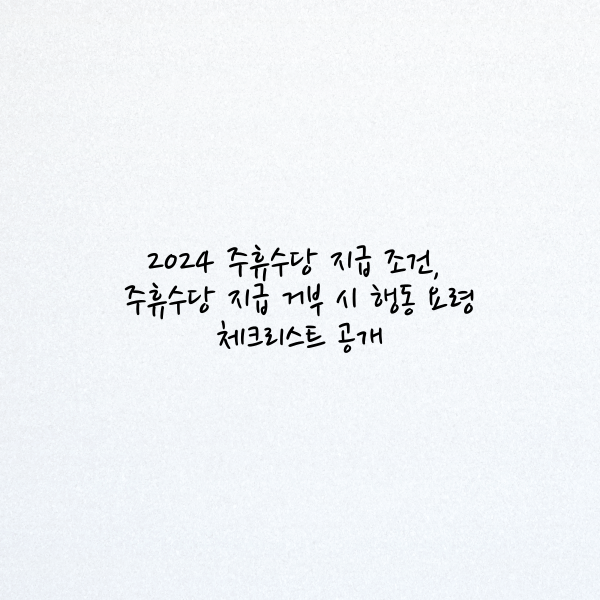 2024 주휴수당 지급 조건,
주휴수당 지급 거부 시 행동 요령
체크리스트 공개